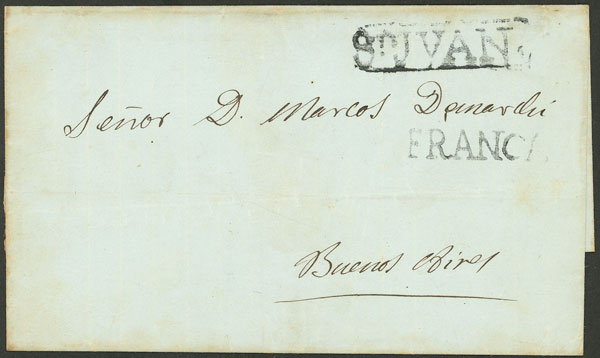 Sn JVAN
Señor D. Marcos Demarchi
FRANCA
Buenos Aires